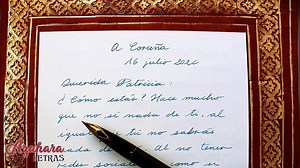 A Coruña
16 julio 202
Querida Patricia:
¿Cómo estás? Hace mucho
que no sé nada de ti, al
igual tú no sabrás
nada de Al no tener
redes sociales, como si
Alqahara
LETRAS